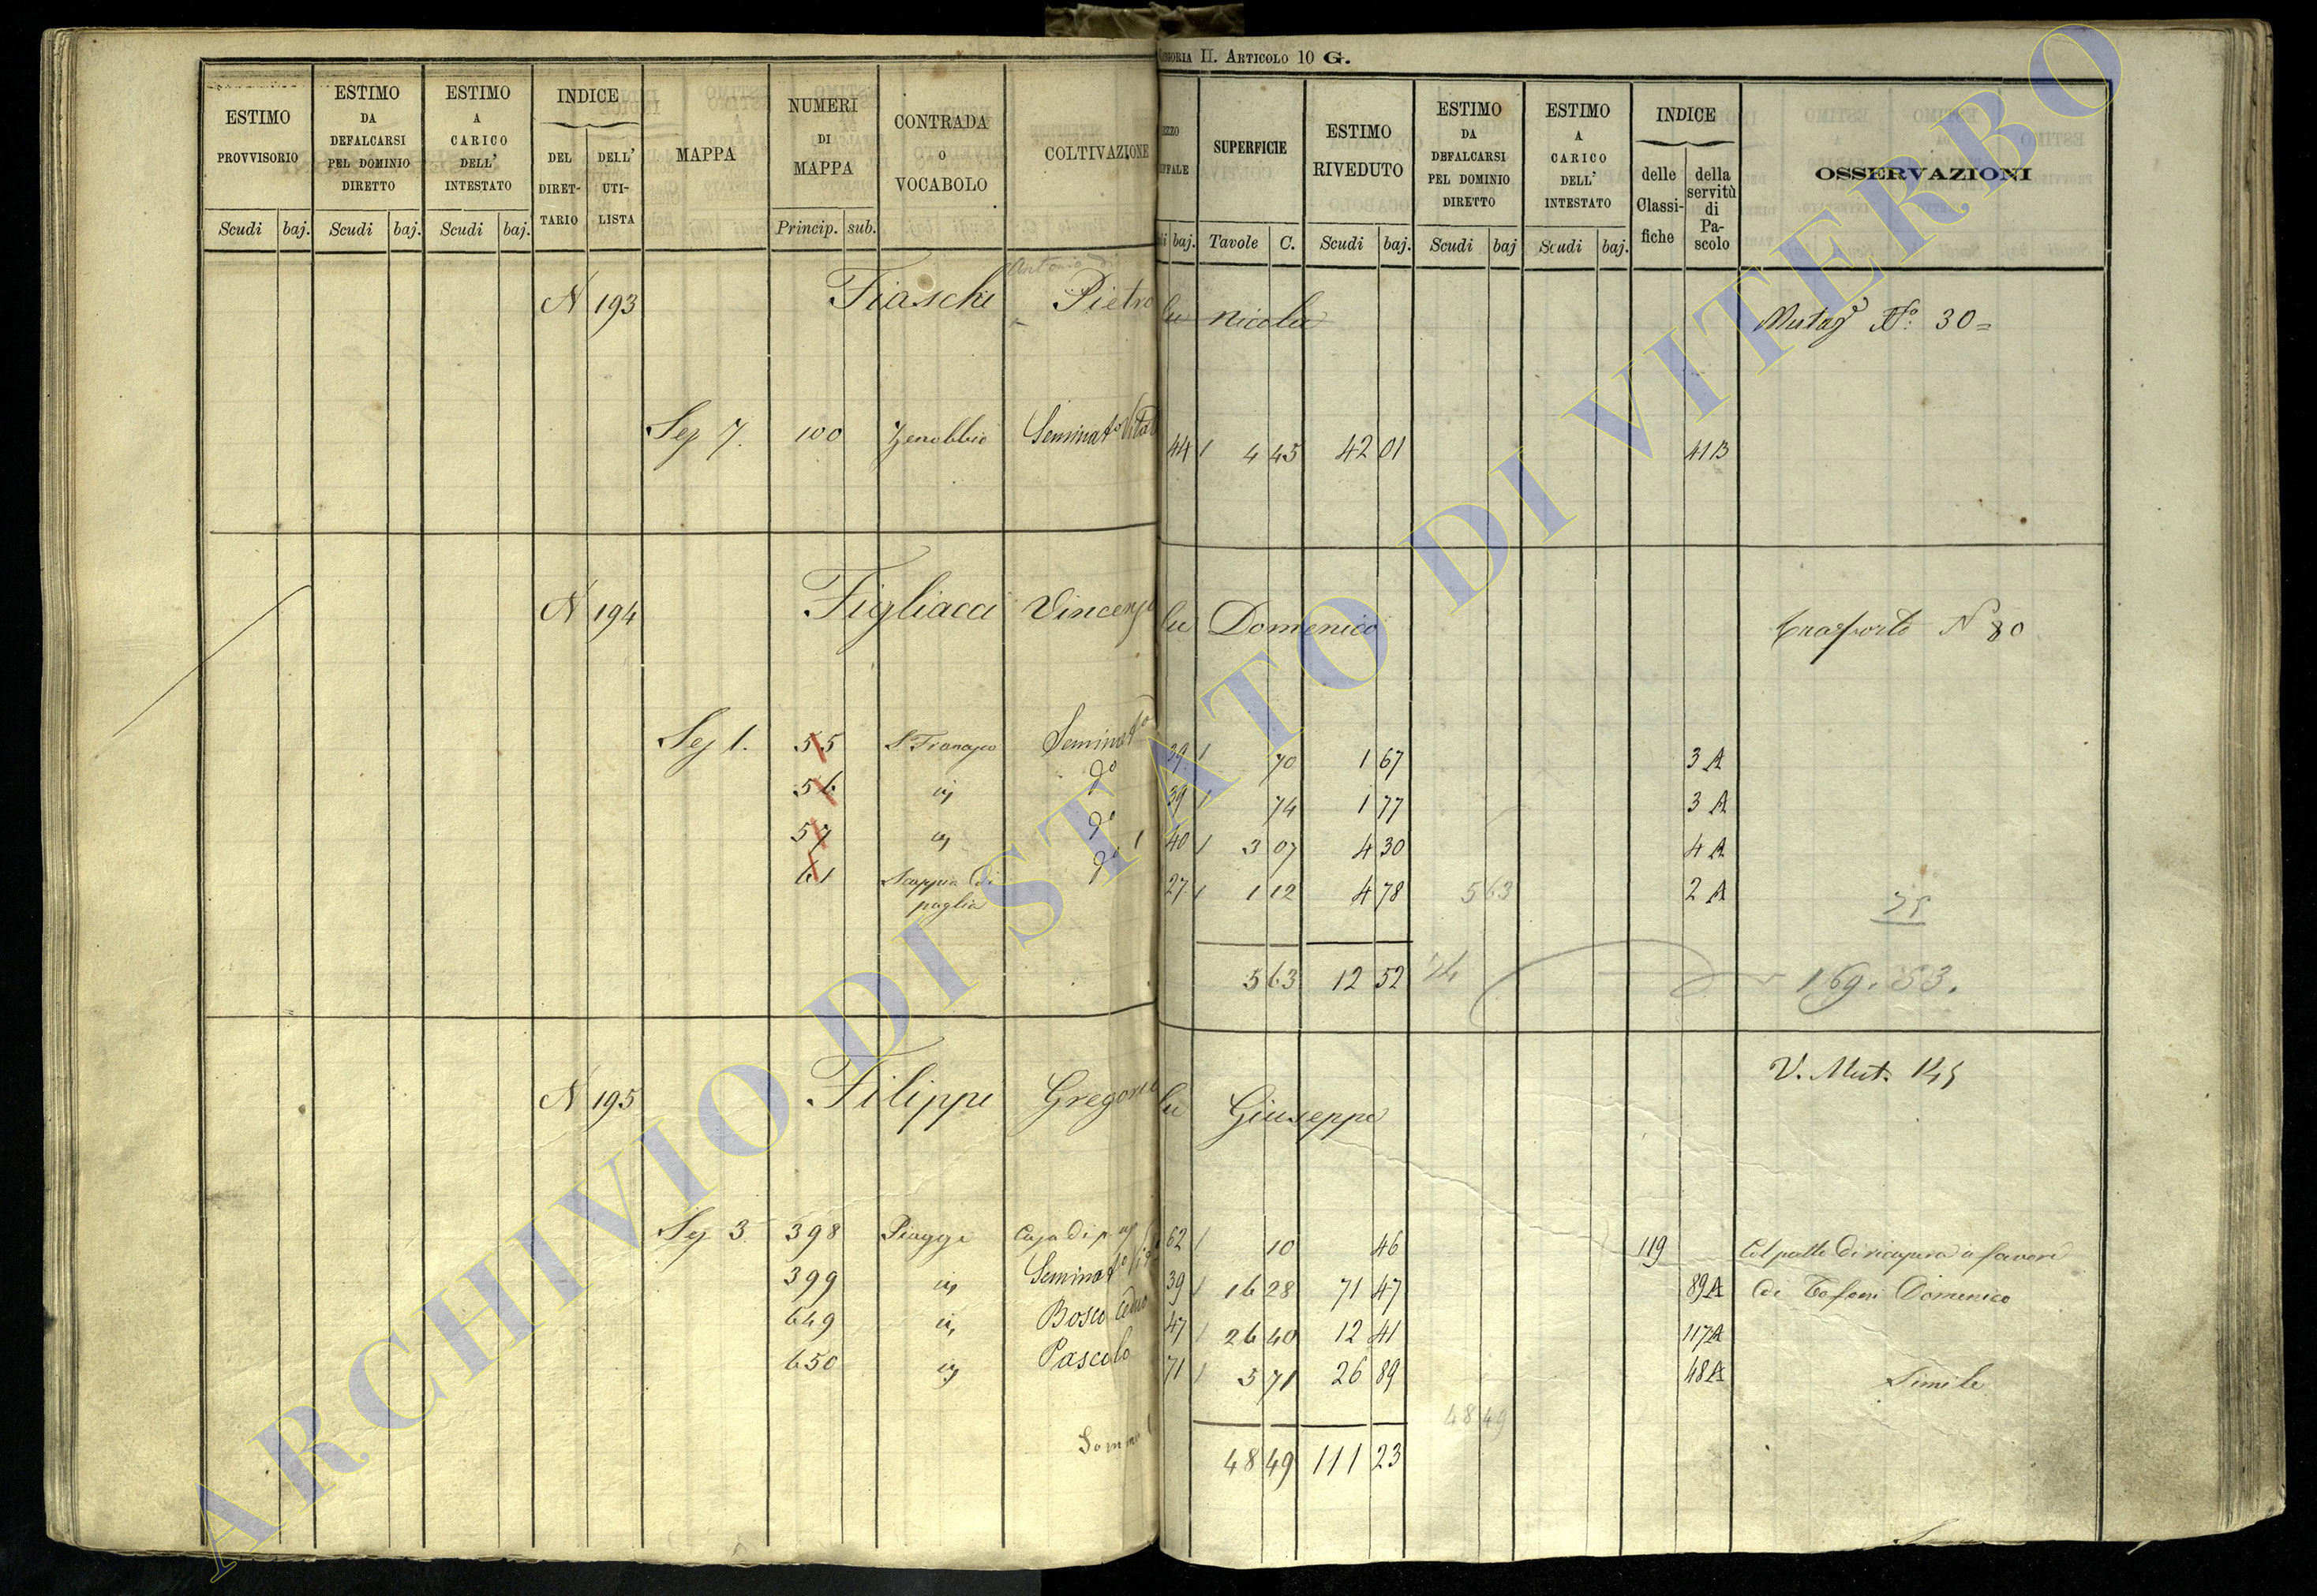 Articolo 10 G.
ESTIMO PROVVISORIO
Scudi baj.
ESTIMO DA DEFALCARSI PEL DOMINIO DIRETTO
Scudi baj.
ESTIMO A CARICO DELL' INTESTATO
Scudi baj.
INDICE
DEL DIRETTARIO
DELL' UTILISTA
MAPPA
NUMERI DI MAPPA
Princip. sub.
CONTRADA O VOCABOLO
COLTIVAZIONE
SUPERFICIE
baj. Tavole C.
ESTIMO RIVEDUTO
Scudi baj.
ESTIMO DA DEFALCARSI PEL DOMINIO DIRETTO
Scudi baj
ESTIMO A CARICO DELL' INTESTATO
Scudi baj.
INDICE
delle Classifiche
della servitù di Pascolo
OSSERVAZIONI
Antonio di
N 193 Fiaschi Pietro fu Nicola
30
Sez 7. 100 Zenobbio Seminato 44 4 45 42 01 41 B
N 194 Figliacci Vincenzo fu Domenico Trasporto N 80
Sez 1. 55 Seminato 39 70 1 67 3 A
56 39 74 1 77 3 A
57 40 3 07 4 30 4 A
61 Scappia di 27 1 12 4 78 5 63 2 A
paglia
5 63 12 52
169. 53.
V. Mut. 145
N 195 Filippi Gregorio fu Giuseppe
Sez 3 398 Piagge Casa di 62 10 46 119 Col patto di ricupera a favore
399 Seminato 39 16 28 71 47 89 A di Tofani Domenico
649 Bosco Ceduo 47 26 40 12 41 117 A
650 Pascolo 71 5 71 26 89 48 A Simile
48 49
Somma 48 49 111 23
ARCHIVIO DI STATO DI VITERBO